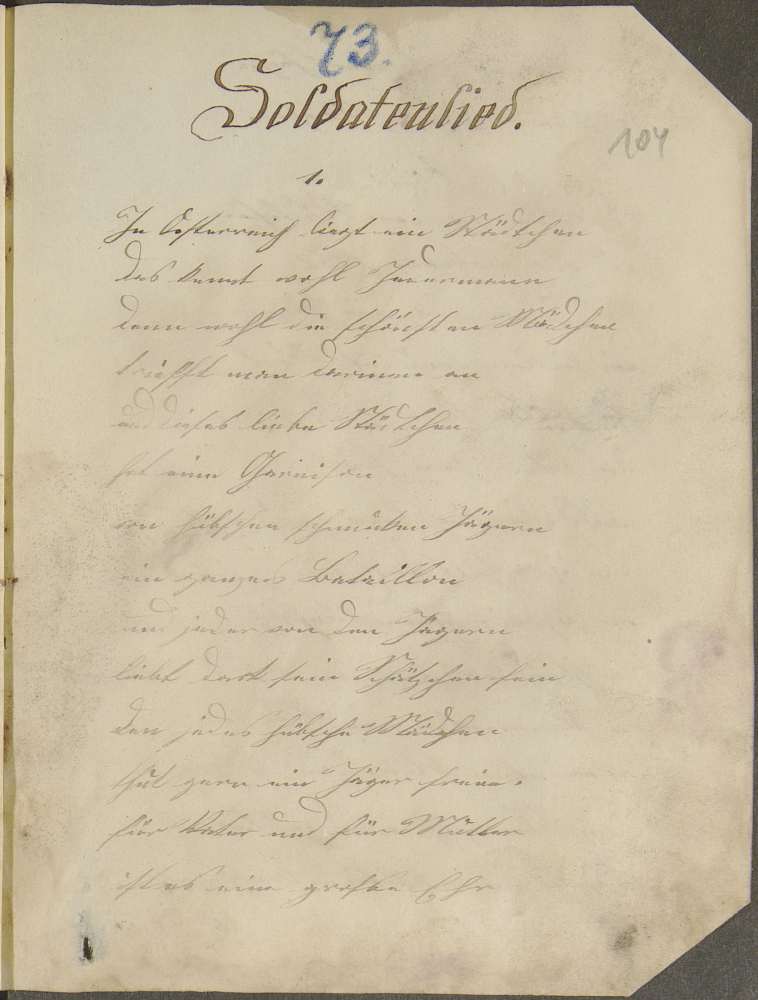 73.
Soldatenlied.
104
1.
In Oesterreich liegt ein Städtchen
das kennt wohl Jedermann
denn wohl die schönsten Mädchen
triefft man darinnen an
und dieses liebe Städtchen
hat eine Garnison
von hübschen schmucken Jägern
ein ganzes Bataillon
und jeder von den Jägern
liebt dort sein Schätzchen fein
den jedes hübsche Mädchen
thut gern ein Jäger frein.
für Vater und für Mutter
ist es eine große Ehr